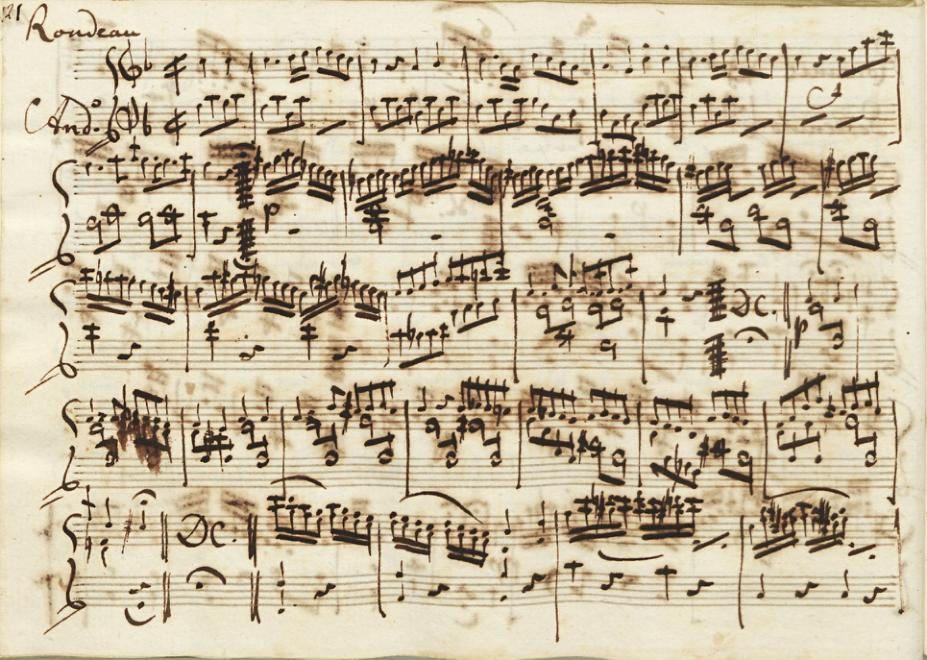 121
Rondeau
And.o
p
DC.
p
DC.